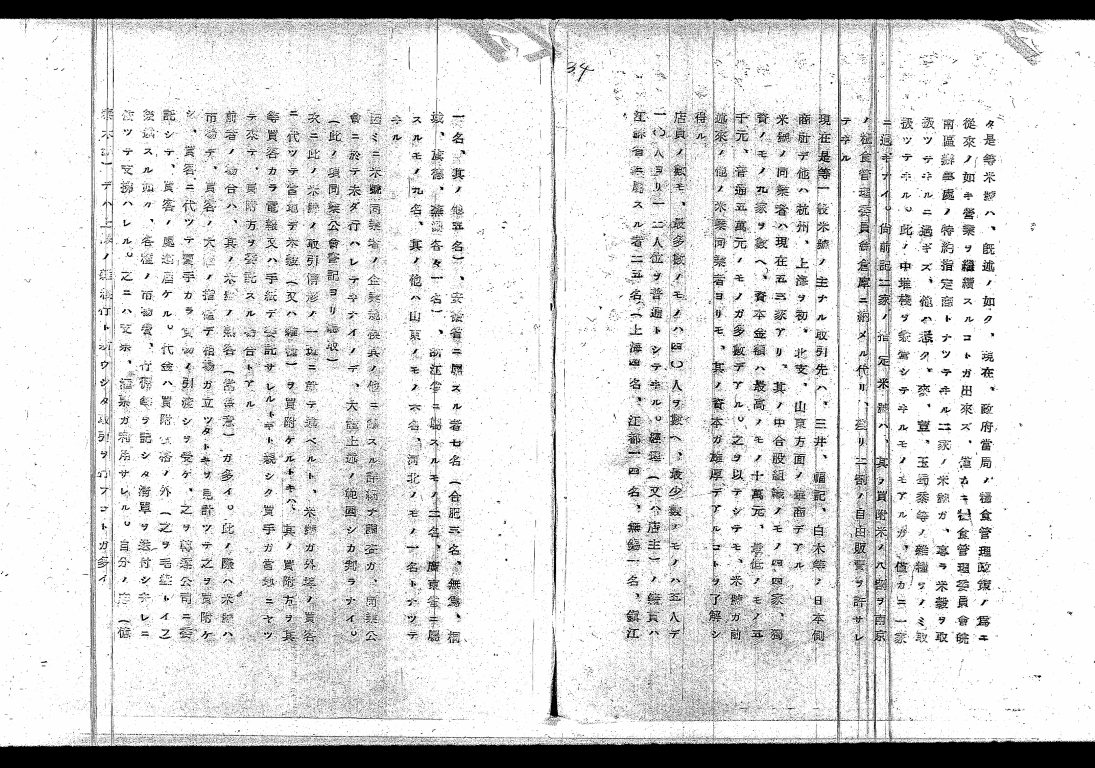 34
々是等米號ハ、既述ノ如ク、現在、政府當局ノ糧食管理政策ノ爲ニ
從來ノ如キ營業ヲ繼續スルコトガ出來ズ、僅カキ糧食管理委員會皖
南區辦事處ノ特約指定商トナツテヰル二家ノ米號ガ、專ラ米穀ヲ取
扱ツテヰルニ過ギズ、他ハ悉ク、麥、豆、玉蜀黍等ノ雜糧ヲノミ取
扱ツテヰル。此ノ中堆棧ヲ兼營シテヰルモノモアルガ、僅カニ一家
ニ過ギナイ。尙前記二家ノ指定米號ハ、其ノ買附米ノ八割ヲ南京
ノ糧食管理委員會倉庫ニ納メル代リ、殘リ二割ノ自由販賣ヲ許サレ
テヰル
現在是等一般米號ノ主ナル取引先ハ、三井、福記、白木等ノ日本側
商社デ他ハ杭州、上海ヲ初、北支、山東方面ノ華商デアル
米號ノ同業者ハ現在五三家アリ、其ノ中合股組織ノモノ四四家、獨
資ノモノ九家ヲ數ヘ、資本金額ハ最高ノモノ十萬元、最低ノモノ五
千元、普通五萬元ノモノガ多數デアル。之ヲ以テシテモ、米號ガ前
述來ノ他ノ米業同業者ヨリモ、其ノ資本ガ雄厚デアルコトヲ了解シ
得ル
店員ノ數モ、最多數ノモノハ四〇人ヲ數ヘ、最少數ノモノハ五人デ
一〇人ヨリ一二人位ヲ普通トシテヰル。經理(又ハ店主)ノ籍貫ハ
江蘇省ニ屬スル者二五名(上海四名、江都一四名、無錫一名、鎭江
一名、其ノ他五名)、安徽省ニ屬スル者七名(合肥三名、無爲、桐
城、旌德、蕪湖各々一名)、浙江省ニ屬スルモノ二名、廣東省ニ屬
スルモノ九名、其ノ他ハ山東ノモノ六名、河北ノモノ一名トナツテ
ヰル
因ミニ米號同業者ノ企業地域其ノ他ニ關スル詳細ナ調査ガ、同業公
會ニ於テ未ダ行ハレテヰナイノデ、大體上述ノ範囲シカ判ラナイ。
(此ノ項同業公會書記ヨリ聽取)
次ニ此ノ米號ノ取引情形ノ一班ニ就テ述ベルト、米號ガ外埠ノ買客
ニ代ツテ當地デ米穀(又ハ雜糧)ヲ買附ケルトキハ、其ノ買附方ヲ其
等買客カラ電報又ハ手紙デ委記サレルトキト親シク買手ガ當地ニヤツ
テ來テ、買附方ヲ委託スル場合トアル
前者ノ場合ハ、其ノ米號ノ熟客(常華意)ガ多イ。此ノ際ハ米號ハ
市場デ、買客ノ大體ノ指値デ相場ガ立ツタトキヲ見計ツテ之ヲ買附ケ
シ、買客ニ代ツテ賣手カラ貨物ノ引渡シヲ受ケ、之ヲ轉運公司ニ委
託シテ、買客ノ處迄届ケル。代金ハ買附價格ノ外(之ヲ毛盤トイフ
稅額スル如ク、各種ノ市場費、行傭等ヲ記シタ淸單ヲ送付シテレニ
依ツテ支拂ハレル。之ニハ支票、滙票ガ利用サレル。自分ノ店(傭
デハ上述ノ手續行ト同ジウシタ取引ヲ行フコトガ多イ